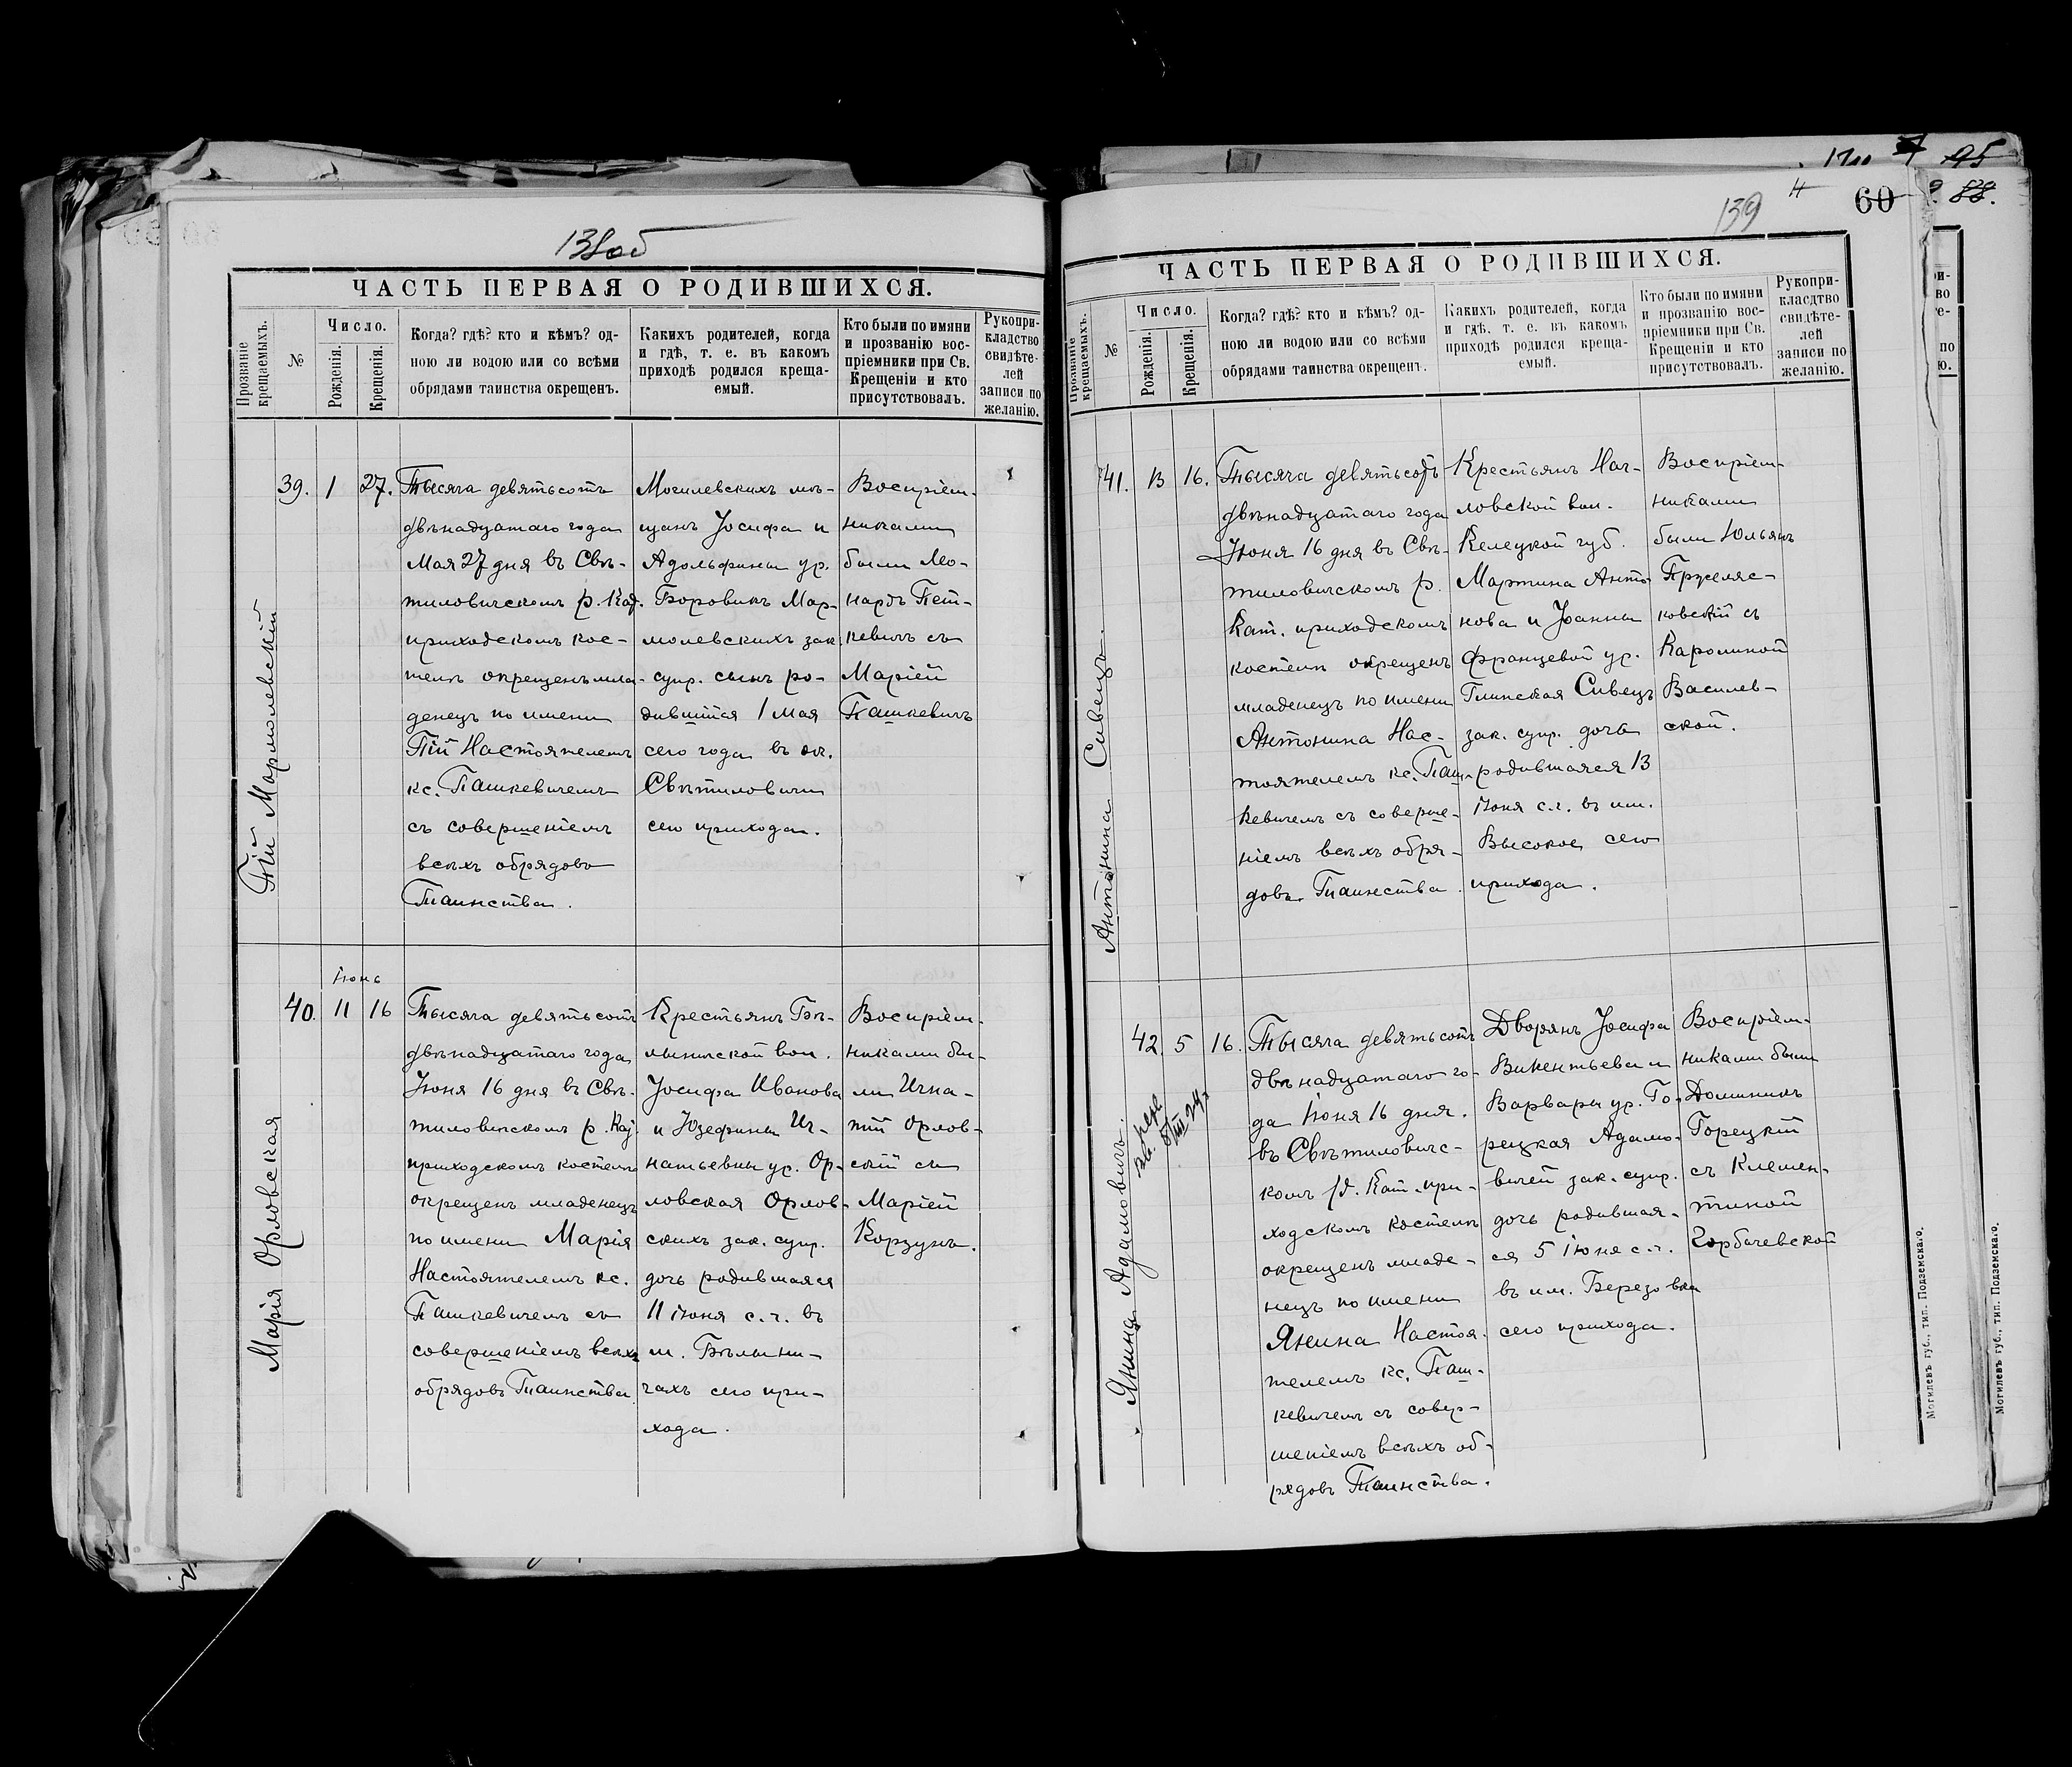 138об
ЧАСТЬ ПЕРВАЯ О РОДИВШИХСЯ.
Прозваніе крещаемыхъ.
№
Число.
Рожденія.
Крещенія.
Когда? гдѣ? кто и кѣмъ? од-
ною ли водою или со всѣми
обрядами таинства окрещенъ.
Какихъ родителей, когда
и гдѣ, т. е. въ какомъ
приходѣ родился креща-
емый.
Кто были по имяни
и прозванію вос-
пріемники при Св.
Крещеніи и кто
присутствовалъ.
Рукопри-
кладство
свидѣте-
лей
записи по
желанію.
Пій Мармолевскій
39.
1
27.
Тысяча девятьсотъ
двѣнадцатаго года
Мая 27 дня въ Свѣ-
тиловичскомъ р. Кат.
приходскомъ кос-
телѣ окрещенъ мла-
денецъ по имени
Пій Настоятелемъ
кс. Пашкевичемъ
съ совершеніемъ
всѣхъ обрядовъ
Таинства.
Могилевскихъ мѣ-
щанъ Іосифа и
Адольфины ур.
Боровикъ Мар-
молевскихъ зак.
супр. сынъ ро-
дившійся 1 мая
сего года въ
Свѣтиловичи
сего прихода.
Воспріем-
никами
были Лео-
нардъ Пет-
кевичъ съ
Маріей
Пашкевичъ
Марія Орловская
Іюнь
40.
11
16
Тысяча девятьсотъ
двѣнадцатаго года
Іюня 16 дня въ Свѣ-
тиловичскомъ р. Кат.
приходскомъ костелѣ
окрещенъ младенецъ
по имени Марія
Настоятелемъ кс.
Пашкевичемъ съ
совершеніемъ всѣхъ
обрядовъ Таинства.
Крестьянъ Бѣ-
лыничской вол.
Іосифа Иванова
и Юзефины Иг-
натьевны ур. Ор-
ловская Орлов-
скихъ зак. супр.
дочь родившаяся
11 іюня с.г. въ
м. Бѣлыни-
чахъ сего при-
хода.
Воспріем-
никами бы-
ли Игна-
тій Орлов-
скій съ
Маріей
Корзунъ.
139
60
95
88.
ЧАСТЬ ПЕРВАЯ О РОДИВШИХСЯ.
Прозваніе крещаемыхъ.
№
Число.
Рожденія.
Крещенія.
Когда? гдѣ? кто и кѣмъ? од-
ною ли водою или со всѣми
обрядами таинства окрещенъ.
Какихъ родителей, когда
и гдѣ, т. е. въ какомъ
приходѣ родился креща-
емый.
Кто были по имяни
и прозванію вос-
пріемники при Св.
Крещеніи и кто
присутствовалъ.
Рукопри-
класдтво
свидѣте-
лей
записи по
желанію.
Антонина Сивецъ.
41.
13
16.
Тысяча девятьсотъ
двѣнадцатаго года
Іюня 16 дня въ Свѣ-
тиловичскомъ р.
Кат. приходскомъ
костелѣ окрещенъ
младенецъ по имени
Антонина Нас-
тоятелемъ кс. Паш-
кевичемъ съ соверше-
ніемъ всѣхъ обря-
довъ Таинства.
Крестьянъ
ловской вол.
Келецкой губ.
Мартина Анто-
нова и Іоанны
Францевой ур.
Глинская Сивецъ
зак. супр. дочь
родившаяся 13
іюня с.г. въ им.
Высокое, сего
прихода.
Воспріем-
никами
были Юльянъ
ковскій съ
Каролиной
Василев-
ской.
Янина Адамовичъ.
42.
5
16.
Тысяча девятьсотъ
двѣнадцатаго го-
да Іюня 16 дня.
въ Свѣтиловичс-
комъ р. Кат. при-
ходскомъ костелѣ
окрещенъ младе-
нецъ по имени
Янина Настоя-
телемъ кс. Паш-
кевичемъ съ совер-
шеніемъ всѣхъ об-
рядовъ Таинства.
Дворянъ Іосифа
Викентьева и
Варвары ур. Го-
рецкая Адамо-
вичей зак. супр.
дочь родившая-
ся 5 іюня с.г.
въ им. Березовка
сего прихода.
Воспріем-
никами были
Доминикъ
Горецкій
съ Клемен-
тиной
Горбачевской
Могилевъ губ., тип. Подземскаго.
Могилевъ губ., тип. Подземскаго.